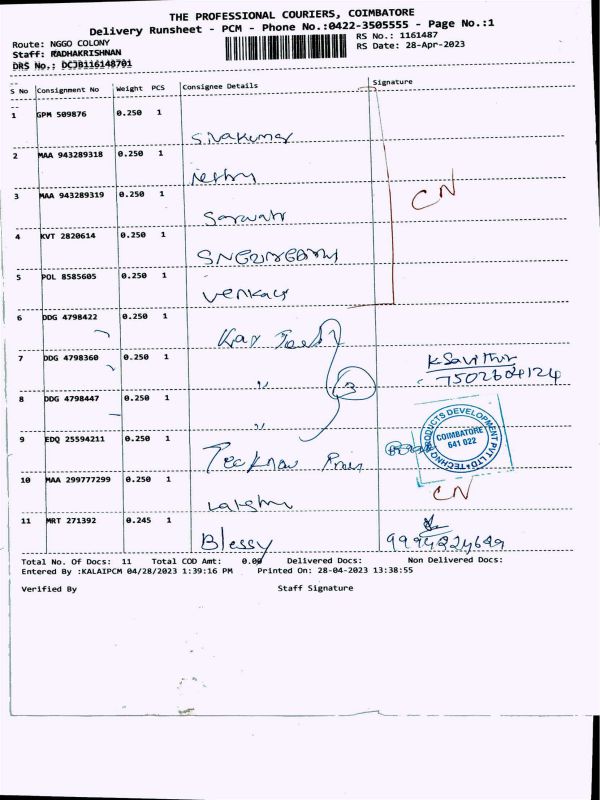 THE PROFESSIONAL COURIERS, COIMBATORE
Delivery Runsheet - PCM - Phone No.:0422-3505555 - Page No.:1
Route: NGGO COLONY
RS No.: 1161487
Staff: RADHAKRISHNAN
RS Date: 28-Apr-2023
DRS No.: DCJB116148701
S No Consignment No Weight PCS Consignee Details Signature
1 GPM 509876 0.250 1
Sivakumar
2 MAA 943289318 0.250 1
3 MAA 943289319 0.250 1
CN
4 KVT 2820614 0.250 1
5 POL 8585605 0.250 1
6 DDG 4798422 0.250 1
Kay Tech
7 DDG 4798360 0.250 1
K. Savithri
7502604124
" 3
8 DDG 4798447 0.250 1
"
TECHNO PRODUCTS DEVELOPMENT PVT LTD
COIMBATORE
641 022
9 EDQ 25594211 0.250 1
10 MAA 299777299 0.250 1 CN
Lakshmi
11 MRT 271392 0.245 1
Blessy 9994224649
Total No. Of Docs: 11 Total COD Amt: 0.00 Delivered Docs: Non Delivered Docs:
Entered By :KALAIPCM 04/28/2023 1:39:16 PM Printed On: 28-04-2023 13:38:55
Verified By Staff Signature